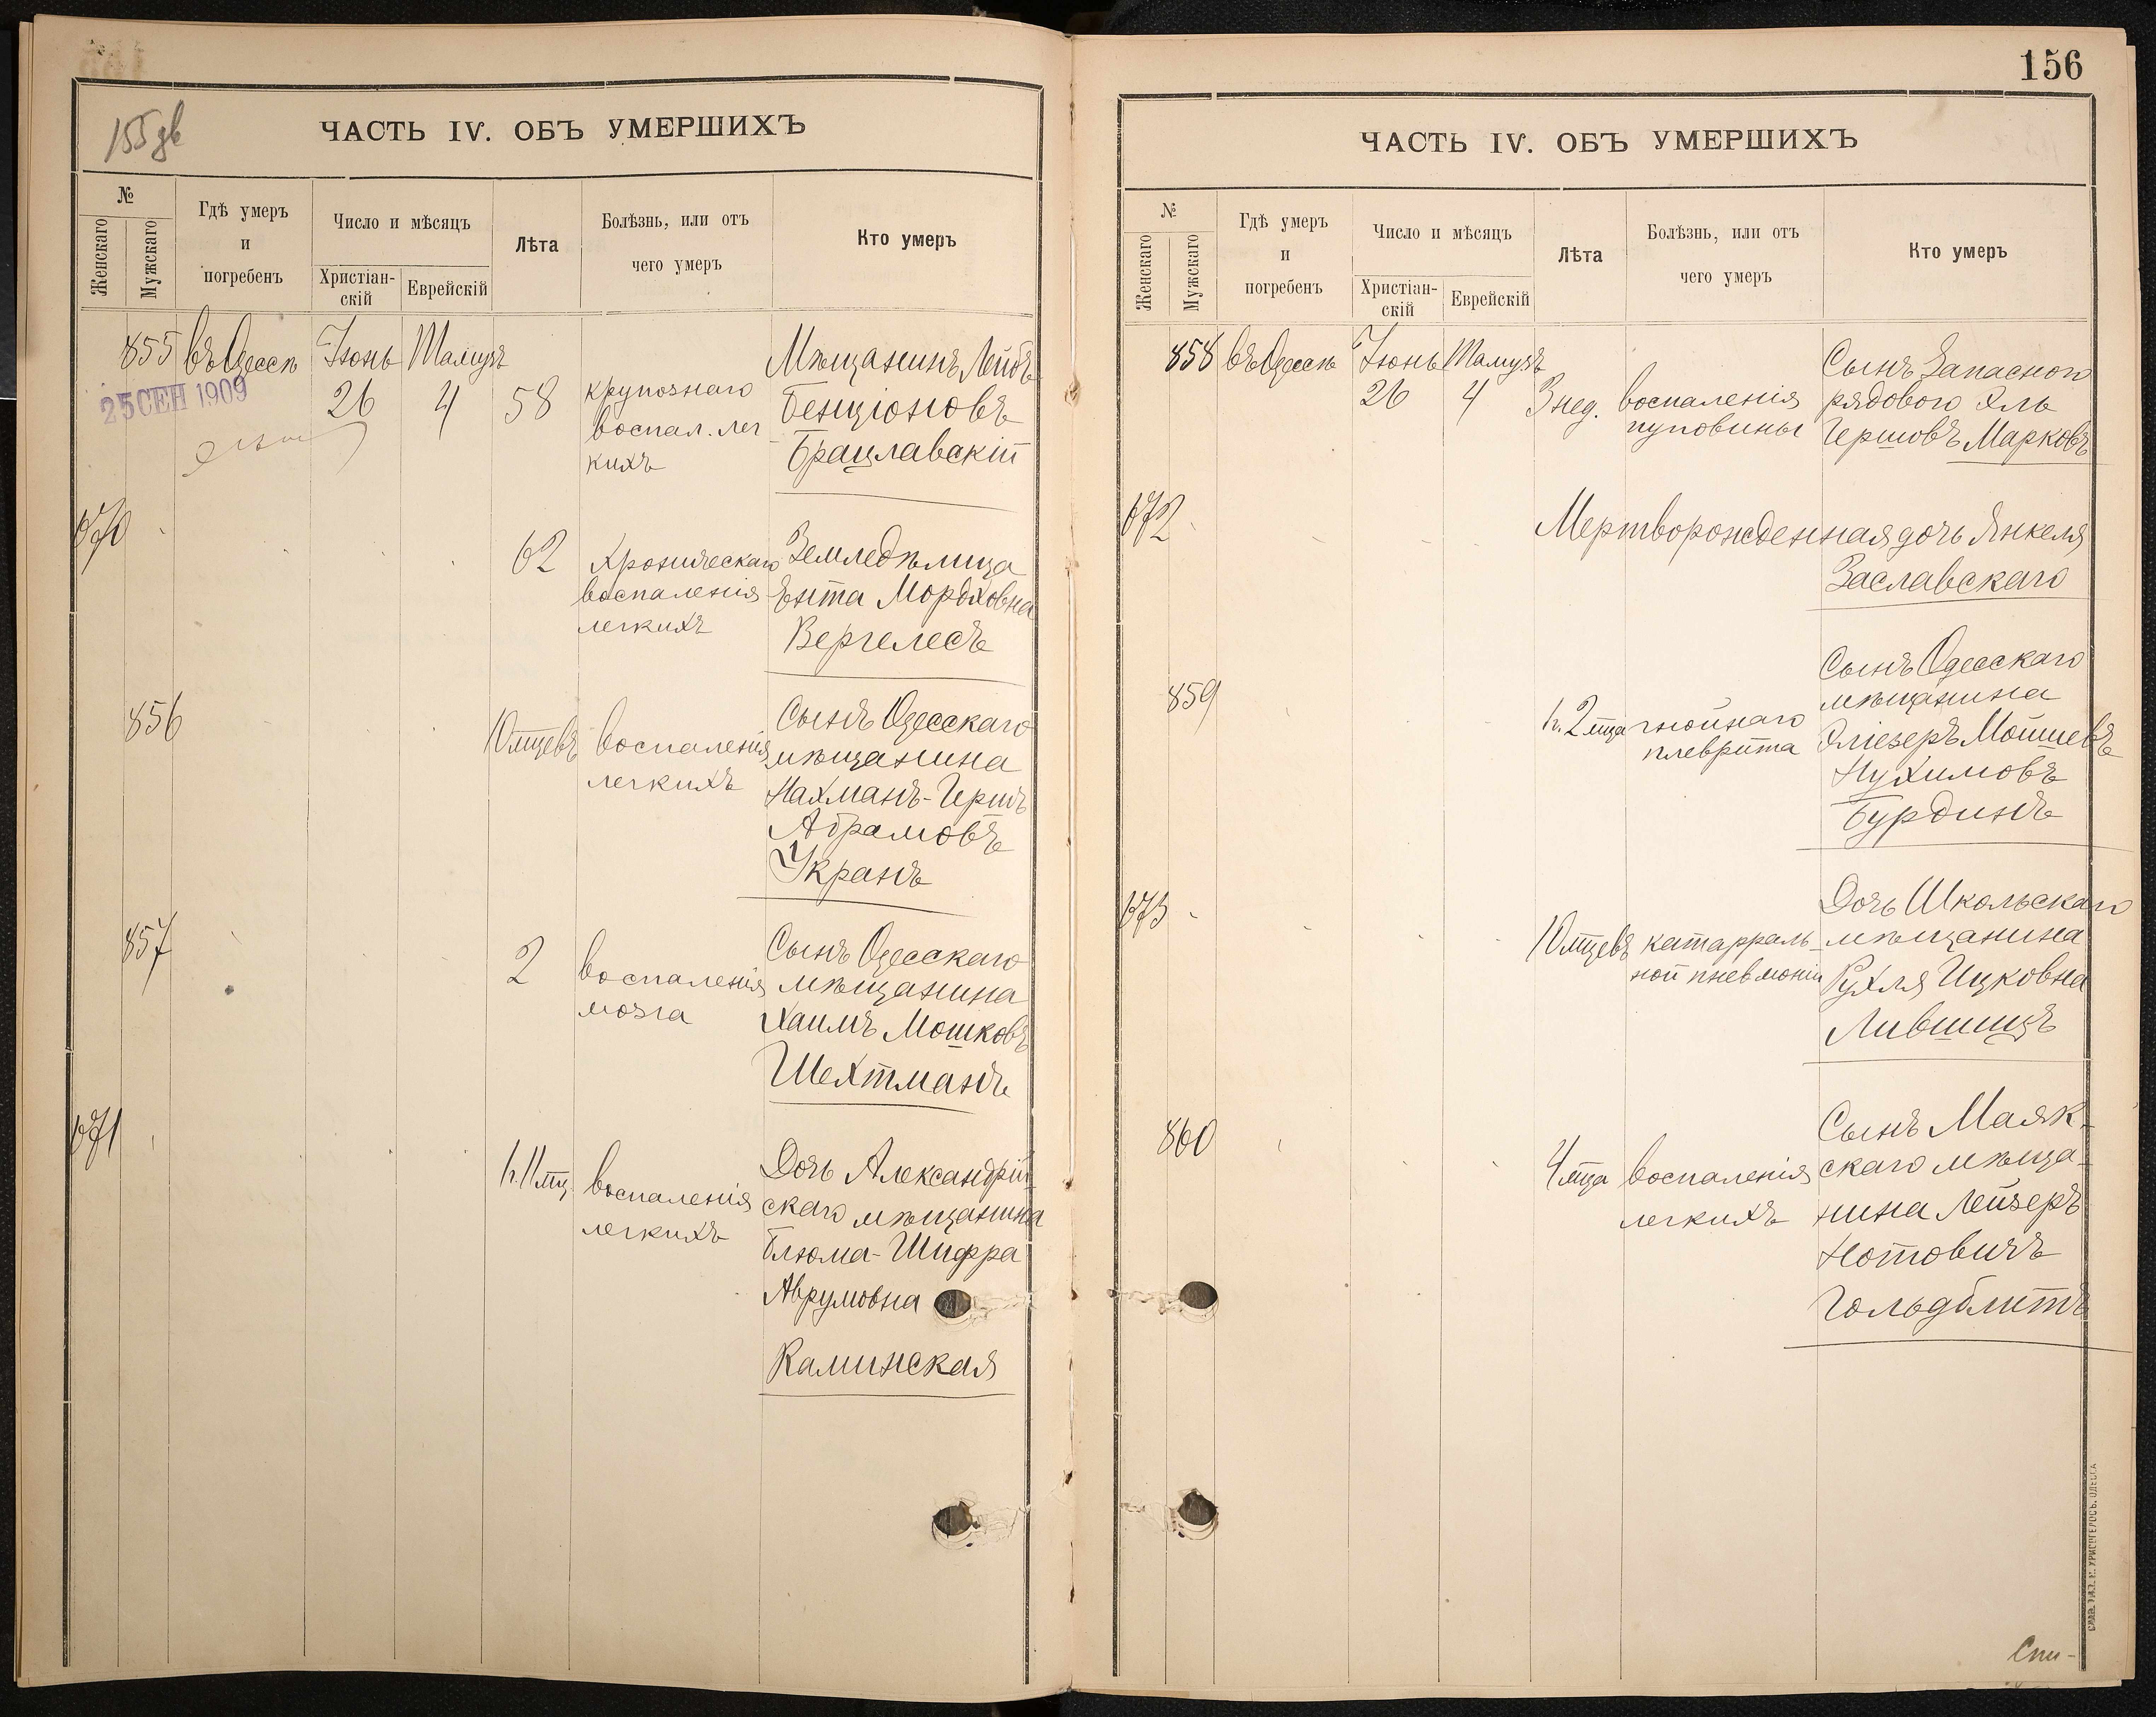 155 дв
ЧАСТЬ IV. ОБЪ УМЕРШИХЪ
№
Женскаго
Мужскаго
Гдѣ умеръ
и
погребенъ
Число и мѣсяцъ
Христіан-
скій
Еврейскій
Лѣта
Болѣзнь, или отъ
чего умеръ
Кто умеръ
855 въ Одессѣ Іюнь Тамузъ Мѣщанинъ Лейбъ
25 СЕН 1909
26 4 58 крупознаго Бенціоновъ
воспал. лег
кихъ Брацлавскій
670
62 Хроническаго Земледѣлица
воспаленія Ента Мордховна
легкихъ Вергелесъ
856 10 мцевъ воспаленія Сынъ Одесскаго
легкихъ мѣщанина
Нахманъ-Гершъ
Абрамовъ
Укранъ
857 2 воспаленія Сынъ Одесскаго
мозга мѣщанина
Хаимъ Мошковъ
Шехтманъ
671
1 г. 11 мц. воспаленія Дочь Александрій-
легкихъ скаго мѣщанина
Блюма-Шифра
Аврумовна
Каминская
156
ЧАСТЬ IV. ОБЪ УМЕРШИХЪ
№
Женскаго
Мужскаго
Гдѣ умеръ
и
погребенъ
Число и мѣсяцъ
Христіан-
скій
Еврейскій
Лѣта
Болѣзнь, или отъ
чего умеръ
Кто умеръ
858 въ Одессѣ Іюнь Тамузъ Сынъ Запаснаго
26 4 3 нед. воспаленія рядового Эль
пуповины Гершовъ Марковъ
672
Мертворожденная дочь Янкеля
Заславскаго
859 1 г. 2 мца гнойнаго Сынъ Одесскаго
плеврита мѣщанина
Эліезеръ Мошевъ
Нухимовъ
Бурдинъ
673
10 мцевъ катарраль- Дочь Школьскаго
ной пневмоніи мѣщанина
Рухля Ицковна
Лившицъ
860
4 мца воспаленія Сынъ Маяк-
легкихъ скаго мѣща-
нина Лейзеръ
Нотовичъ
Гольдблитъ
Спи-
ОДЕССА